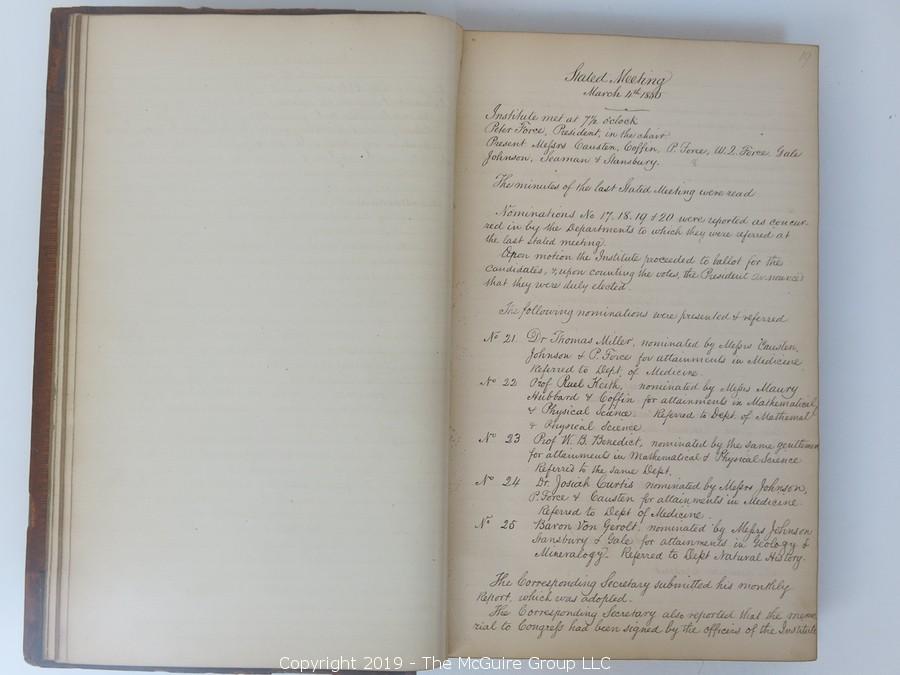 19
Stated Meeting
March 4th 1846
Institute met at 7½ o'clock
Peter Force, President, in the chair
Present Messrs Causten, Coffin, P. Force, W. Q. Force, Gale
Johnson, Seaman & Stansbury.
The minutes of the last Stated Meeting were read
Nominations No 17. 18. 19 & 20 were reported as concur-
red in by the Departments to which they were referred at
the last stated meeting.
Upon motion the Institute proceeded to ballot for the
candidates, &, upon counting the votes, the President announced
that they were duly elected.
The following nominations were presented & referred
No 21. Dr Thomas Miller, nominated by Messrs Causten,
Johnson & P. Force for attainments in Medicine
Referred to Dept. of Medicine.
No 22 Prof Ruel Keith, nominated by Messrs Maury
Hubbard & Coffin for attainments in Mathematical
& Physical Science. Referred to Dept. of Mathemal
& Physical Science
No 23 Prof W. B. Benedict, nominated by the same gentlemen
for attainments in Mathematical & Physical Science
Referred to the same Dept.
No 24 Dr. Josiah Curtis nominated by Messrs Johnson,
P. Force & Causten for attainments in Medicine.
Referred to Dept of Medicine.
No 25 Baron Von Gerolt. nominated by Messrs Johnson
Stansbury & Gale for attainments in Geology &
Mineralogy. Referred to Dept Natural History.
The Corresponding Secretary submitted his monthly
Report, which was adopted.
The Corresponding Secretary also reported that the memo-
rial to Congress had been signed by the officers of the Institute
Copyright 2019 - The McGuire Group LLC